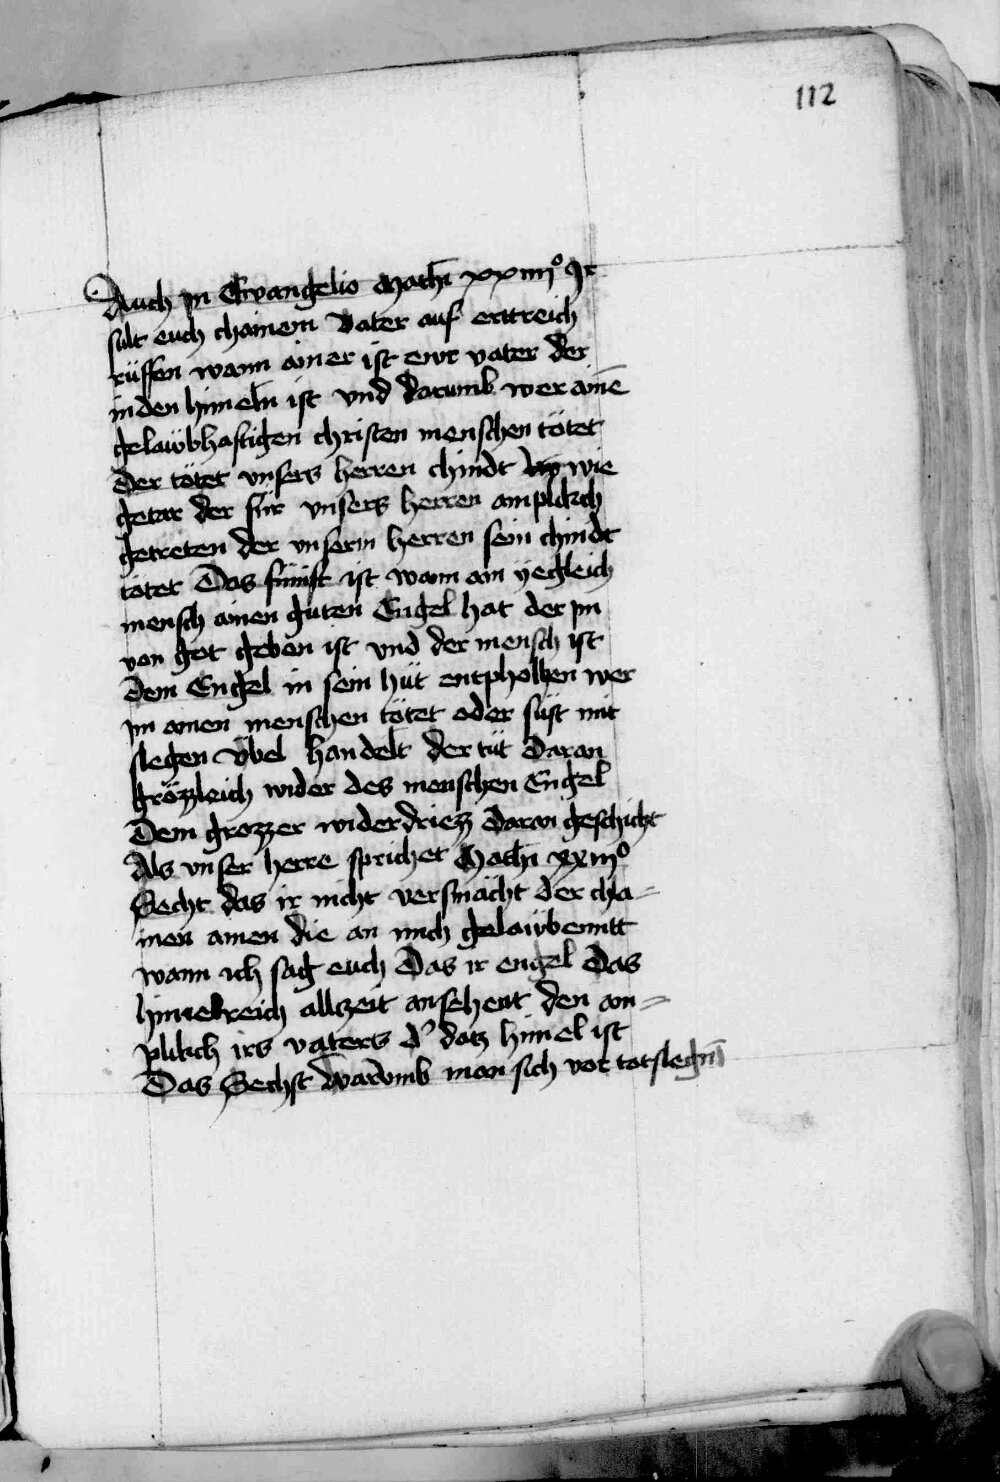 112
Auch jn Ewangelio Mathi xxiiij° Jr
sült euch chainem vater auf erttreich
rüffen wann ainer ist ewr vater der
in den himeln ist vnd darumb wer ainē
gelaübhaftigen christen menschen tötet
der tötet vnsers herren chindt wie
getar der für vnsers herren amplikch
getreten der vnserm herren sein chindt
tötet Das fünift ist wann ain yegleich
mensch ainen guten Engel hat der jm
von got geben ist vnd der mensch ist
dem Engel in sein hüt entpholhen wer
jm ainen menschen tötet oder süst mit
slegen vbel handelt der tüt daran
grözzleich wider des menschen Engel
dem grozzer widerdriezz daran geschicht
Als vnser herre sprichet Mathi xxiij°
Secht das ir nicht versmächt der chla=
inen ainen die an mich gelaübenntt
wann ich sag euch Das ir engel das
himelreich allczeit ansehent den an=
plikch irs vaters d' datz himel ist
Das Sechst warumb man sich vor totslegñ